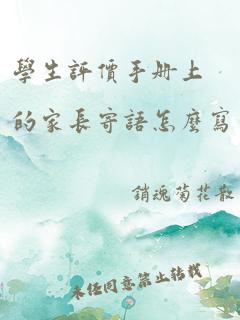 學生評價手册上
的家長寄語怎麼寫
銷魂菊花散
未经同意禁止转载